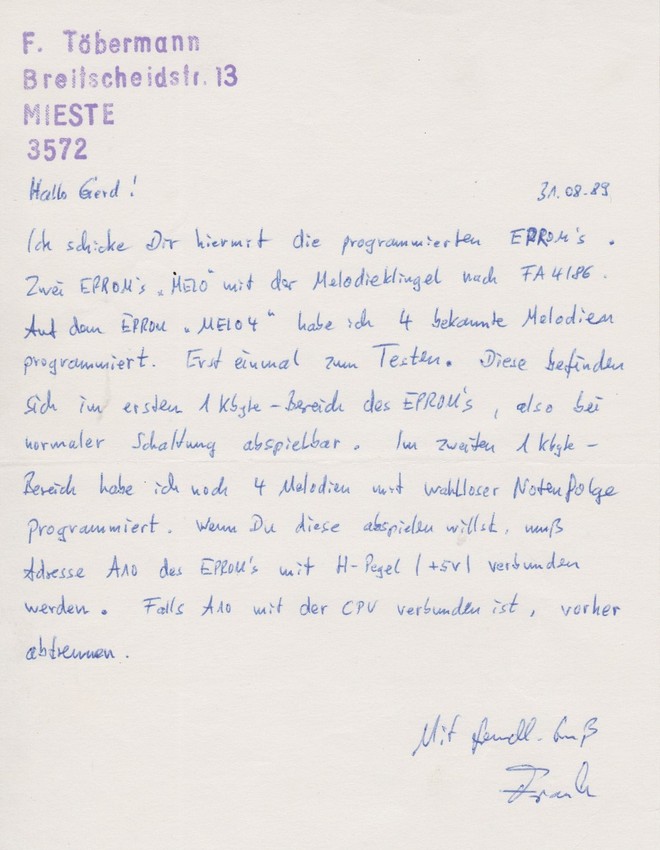 F. Töbermann
Breitscheidstr. 13
MIESTE
3572
Hallo Gerd!
31.08.89
Ich schicke Dir hiermit die programmierten EPROM's.
Zwei EPROM's „MELO" mit der Melodieklingel nach FA 4/86.
Auf dem EPROM „MELO4" habe ich 4 bekannte Melodien
programmiert. Erst einmal zum Testen. Diese befinden
sich im ersten 1 kbyte-Bereich des EPROM's, also bei
normaler Schaltung abspielbar. Im zweiten 1 kbyte-
Bereich habe ich noch 4 Melodien mit wahlloser Notenfolge
programmiert. Wenn Du diese abspielen willst, muß
Adresse A10 des EPROM's mit H-Pegel (+5V) verbunden
werden. Falls A10 mit der CPU verbunden ist, vorher
abtrennen.
Mit freundl. Gruß
Frank